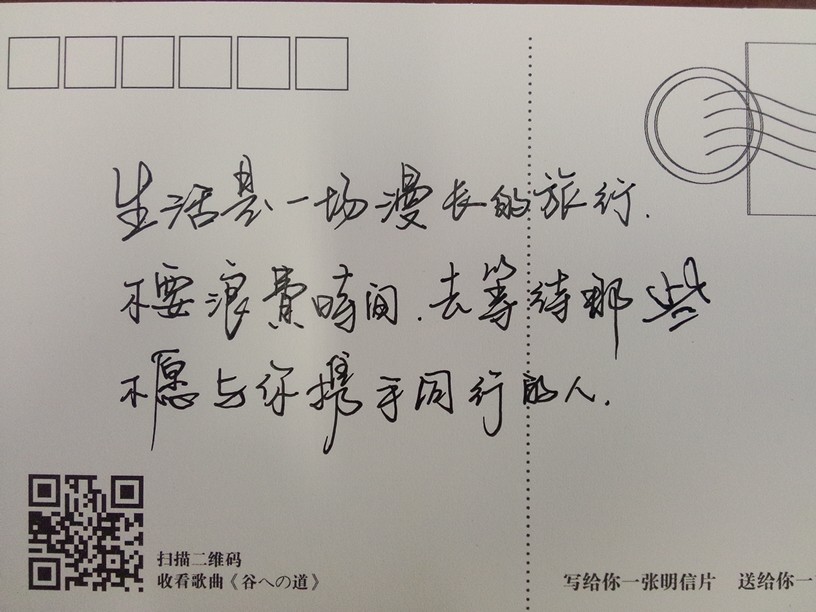 生活是一场漫长的旅行.
不要浪費時间.去等待那些
不愿与你携手同行的人.
扫描二维码
收看歌曲《谷への道》
写给你一张明信片 送给你一